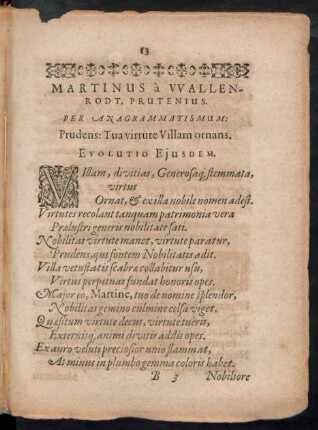 13
MARTINUS à VVALLEN-
RODT, PRUTENIUS.
PER ANAGRAMMATISMUM:
Prudens: Tua virtute Villam ornans.
EVOLUTIO EJUSDEM.
VIllam, divitias, Generosaq́; stemmata,
virtus
Ornat, & ex illa nobile nomen adest.
Virtutes recolant tanquam patrimonia vera
Prælustri generis nobilitate sati.
Nobilitas virtute manet, virtute paratur,
Prudens, qui fontem Nobilitatis adit.
Villa vetustatis scabræ collabitur usu,
Virtus perpetuas fundat honoris opes.
Major eo, Martine, tuo de nomine splendor,
Nobilitas gemino culmine celsa viget.
Quæsitum virtute decus, virtute tueris,
Externisq́; animi divitis addis opes.
Ex auro veluti preciosior unio flammat,
At minus in plumbo gemma coloris habet.
B 3 Nobiliore